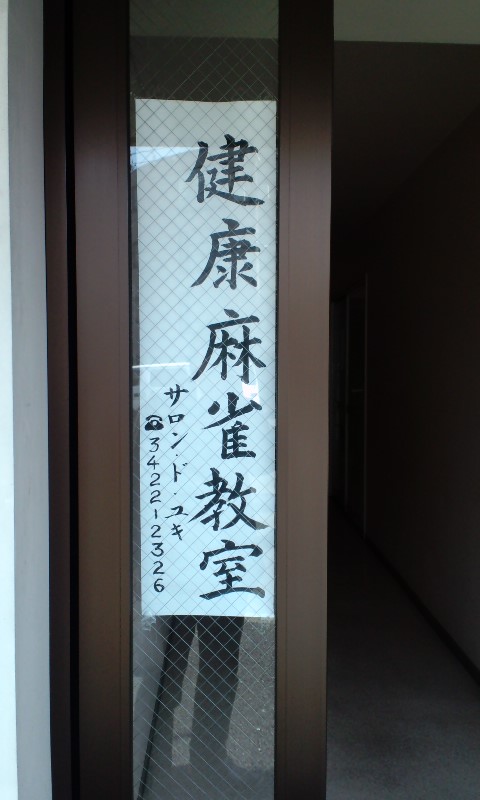 健康麻雀教室
サロン・ド・ユキ
☎3422-2326